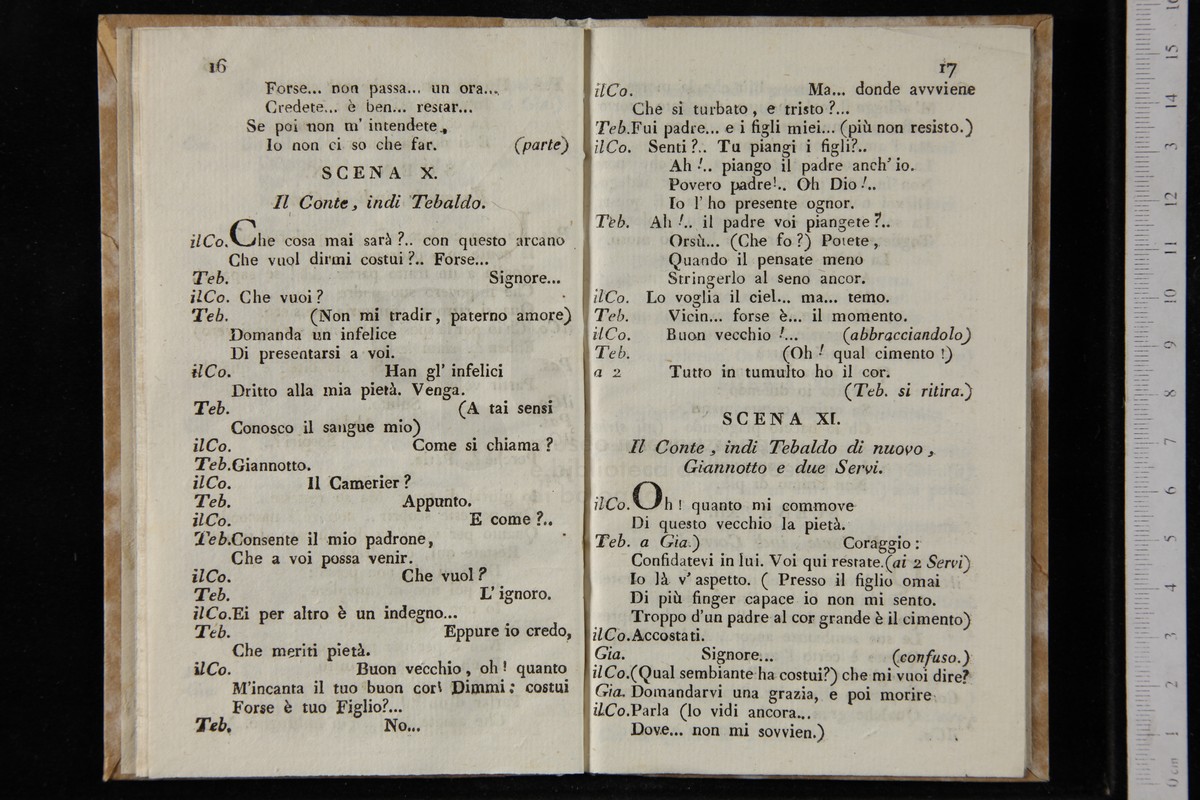 16
Forse... non passa... un ora...
Credete... è ben... restar...
Se poi non m' intendete,
Io non ci so che far. (parte)
SCENA X.
Il Conte, indi Tebaldo.
ilCo. Che cosa mai sarà ?.. con questo arcano
Che vuol dirmi costui ?.. Forse...
Teb. Signore...
ilCo. Che vuoi ?
Teb. (Non mi tradir, paterno amore)
Domanda un infelice
Di presentarsi a voi.
ilCo. Han gl' infelici
Dritto alla mia pietà. Venga.
Teb. (A tai sensi
Conosco il sangue mio)
ilCo. Come si chiama ?
Teb. Giannotto.
ilCo. Il Camerier ?
Teb. Appunto.
ilCo. E come ?..
Teb. Consente il mio padrone,
Che a voi possa venir.
ilCo. Che vuol ?
Teb. L' ignoro.
ilCo. Ei per altro è un indegno...
Teb. Eppure io credo,
Che meriti pietà.
ilCo. Buon vecchio, oh ! quanto
M'incanta il tuo buon cor! Dimmi : costui
Forse è tuo Figlio?...
Teb. No...
17
ilCo. Ma... donde avvviene
Che si turbato, e tristo ?...
Teb. Fui padre... e i figli miei... (più non resisto.)
ilCo. Senti ?.. Tu piangi i figli?..
Ah !.. piango il padre anch' io.
Povero padre!.. Oh Dio !..
Io l' ho presente ognor.
Teb. Ah !.. il padre voi piangete ?..
Orsù... (Che fo ?) Potete,
Quando il pensate meno
Stringerlo al seno ancor.
ilCo. Lo voglia il ciel... ma... temo.
Teb. Vicin... forse è... il momento.
ilCo. Buon vecchio !... (abbracciandolo)
Teb. (Oh ! qual cimento !)
a 2 Tutto in tumulto ho il cor.
(Teb. si ritira.)
SCENA XI.
Il Conte, indi Tebaldo di nuovo,
Giannotto e due Servi.
ilCo. Oh ! quanto mi commove
Di questo vecchio la pietà.
Teb. a Gia.) Coraggio :
Confidatevi in lui. Voi qui restate.(ai 2 Servi)
Io là v' aspetto. ( Presso il figlio omai
Di più finger capace io non mi sento.
Troppo d'un padre al cor grande è il cimento)
ilCo. Accostati.
Gia. Signore... (confuso.)
ilCo. (Qual sembiante ha costui?) che mi vuoi dire?
Gia. Domandarvi una grazia, e poi morire
ilCo. Parla (lo vidi ancora...
Dove... non mi sovvien.)
0 cm 1 2 3 4 5 6 7 8 9 10 11 12 13 14 15